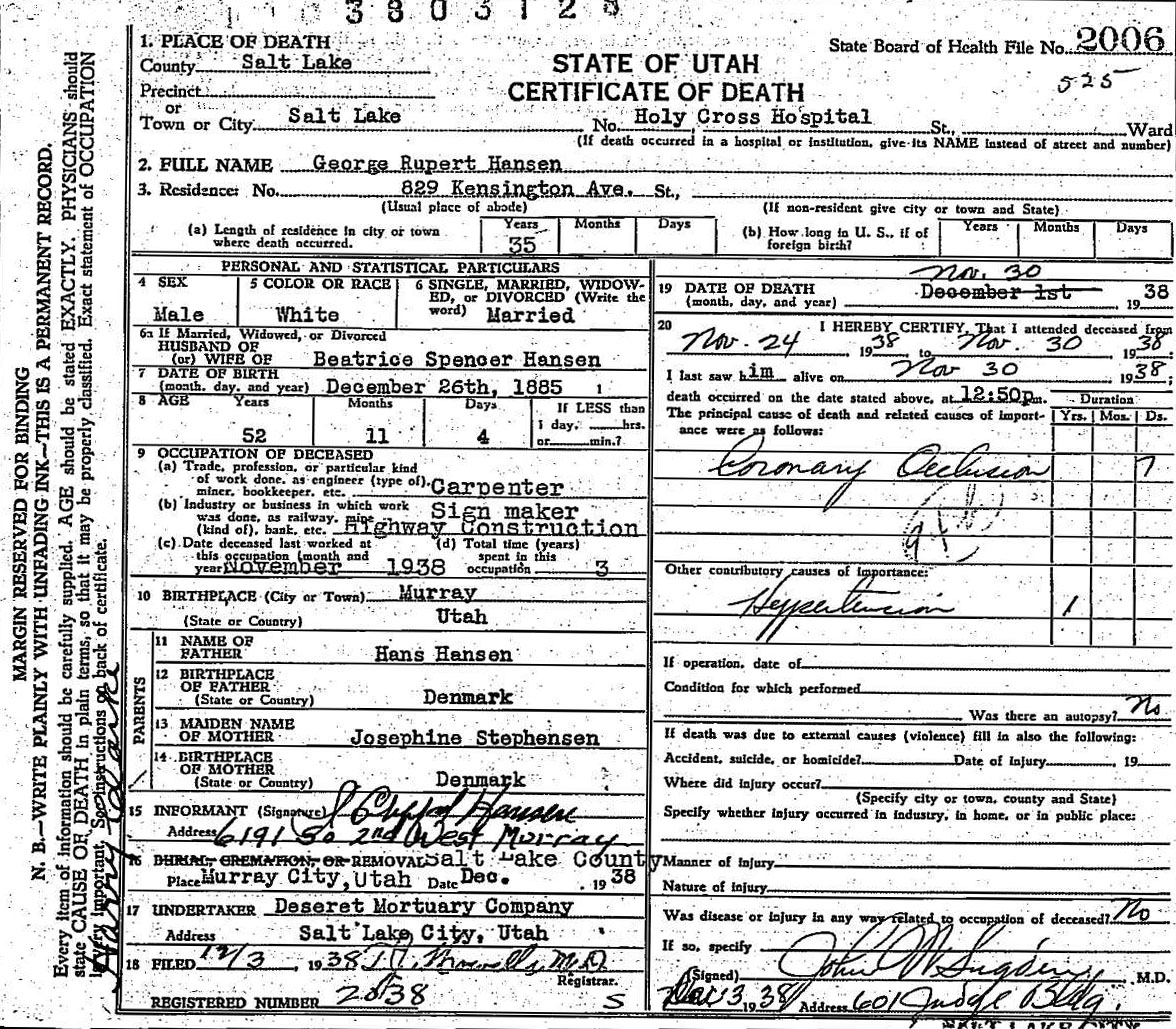 3803128
State Board of Health File No. 2006
525
1. PLACE OF DEATH
County Salt Lake
Precinct
or
Town or City Salt Lake
STATE OF UTAH
CERTIFICATE OF DEATH
No. Holy Cross Hospital St., Ward
(If death occurred in a hospital or institution, give its NAME instead of street and number)
2. FULL NAME George Rupert Hansen
3. Residence: No. 829 Kensington Ave. St.,
(Usual place of abode) (If non-resident give city or town and State)
(a) Length of residence in city or town where death occurred. Years 35 Months Days
(b) How long in U. S., if of foreign birth? Years Months Days
PERSONAL AND STATISTICAL PARTICULARS
4 SEX Male
5 COLOR OR RACE White
6 SINGLE, MARRIED, WIDOW-
ED, or DIVORCED (Write the
word) Married
6a If Married, Widowed, or Divorced
HUSBAND OF
(or) WIFE OF Beatrice Spencer Hansen
7 DATE OF BIRTH
(month, day, and year) December 26th, 1885
8 AGE Years 52 Months 11 Days 4
If LESS than
1 day, hrs.
or min.?
9 OCCUPATION OF DECEASED
(a) Trade, profession, or particular kind
of work done, as engineer (type of),
miner, bookkeeper, etc. Carpenter
(b) Industry or business in which work
was done, as railway, mine
(kind of), bank, etc. Sign maker
Highway Construction
(c) Date deceased last worked at
this occupation (month and
year) November 1938
(d) Total time (years)
spent in this
occupation 3
10 BIRTHPLACE (City or Town) Murray
(State or Country) Utah
PARENTS
11 NAME OF
FATHER Hans Hansen
12 BIRTHPLACE
OF FATHER
(State or Country) Denmark
13 MAIDEN NAME
OF MOTHER Josephine Stephensen
14 BIRTHPLACE
OF MOTHER
(State or Country) Denmark
15 INFORMANT (Signature) Hansen
Address 6191 So 2nd West Murray
16 BURIAL, CREMATION, OR REMOVAL Salt Lake County
Place Murray City, Utah Date Dec. 1938
17 UNDERTAKER Deseret Mortuary Company
Address Salt Lake City, Utah
18 FILED 12/3, 1938 M.D
Registrar.
REGISTERED NUMBER 2038 S
Nov. 30
19 DATE OF DEATH December 1st
(month, day, and year) 1938
20 I HEREBY CERTIFY, That I attended deceased from
Nov. 24 1938 to Nov. 30 1938
I last saw him alive on Nov 30 1938.
death occurred on the date stated above, at 12:50p m.
Duration
The principal cause of death and related causes of import-
ance were as follows: Yrs. Mos. Ds.
Coronary Occlusion 7
Other contributory causes of importance:
Hypertension 1
If operation, date of
Condition for which performed
Was there an autopsy? No
If death was due to external causes (violence) fill in also the following:
Accident, suicide, or homicide? Date of Injury , 19
Where did injury occur?
(Specify city or town, county and State)
Specify whether injury occurred in industry, in home, or in public place:
Manner of injury
Nature of injury
Was disease or injury in any way related to occupation of deceased? No
If so, specify
(Signed) John M. M.D.
3 1938 Address 601 Judge Bldg.
MARGIN RESERVED FOR BINDING
N. B.—WRITE PLAINLY WITH UNFADING INK—THIS IS A PERMANENT RECORD.
Every item of information should be carefully supplied. AGE should be stated EXACTLY. PHYSICIANS should
state CAUSE OF DEATH in plain terms, so that it may be properly classified. Exact statement of OCCUPATION
is very important. See instructions on back of certificate.